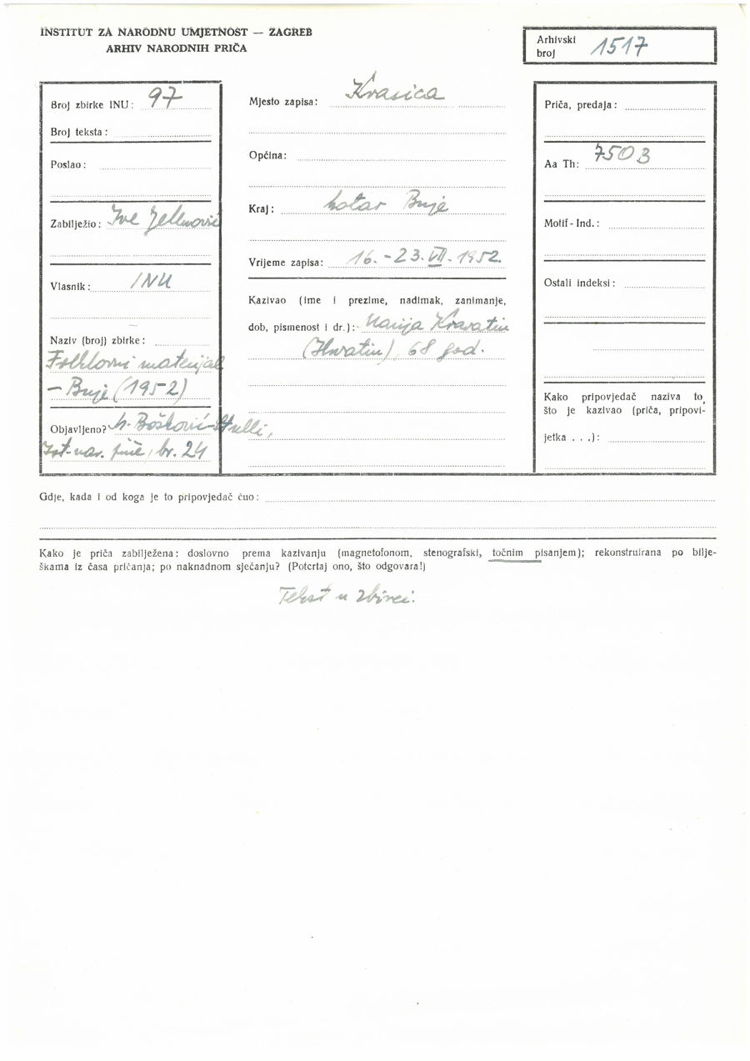 INSTITUT ZA NARODNU UMJETNOST — ZAGREB
ARHIV NARODNIH PRIČA
Arhivski
broj 1517
Broj zbirke INU: 97
Broj teksta:
Poslao:
Zabilježio: Ive Jelenović
Vlasnik: INU
Naziv (broj) zbirke:
Folklorni materijal
— Buje (1952)
Objavljeno? M. Bošković-Stulli,
Ist. nar. priče, br. 24
Mjesto zapisa: Krasica
Općina:
Kraj: kotar Buje
Vrijeme zapisa: 16. - 23. VII. 1952.
Kazivao (ime i prezime, nadimak, zanimanje,
dob, pismenost i dr.): Marija Kravatin
(Hrvatin), 68 god.
Priča, predaja:
Aa Th: 750B
Motif-Ind.:
Ostali indeksi:
Kako pripovjedač naziva to,
što je kazivao (priča, pripovi-
jetka . . .):
Gdje, kada i od koga je to pripovjedač čuo:
Kako je priča zabilježena: doslovno prema kazivanju (magnetofonom, stenografski, točnim pisanjem); rekonstruirana po bilje-
škama iz časa pričanja; po naknadnom sjećanju? (Potcrtaj ono, što odgovara!)
Tekst u zbirci.